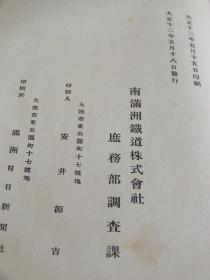 大正十二年五月十五日印刷
大正十二年五月十八日發行
南滿洲鐵道株式會社
庶務部調査課
大連市東公園町十七號地
印刷人 安井源吉
大連市東公園町十七號地
印刷所 滿洲日日新聞社